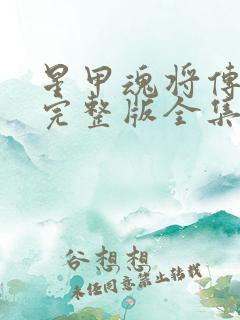 星甲魂将传
完整版全集
谷想想
未经同意禁止转载